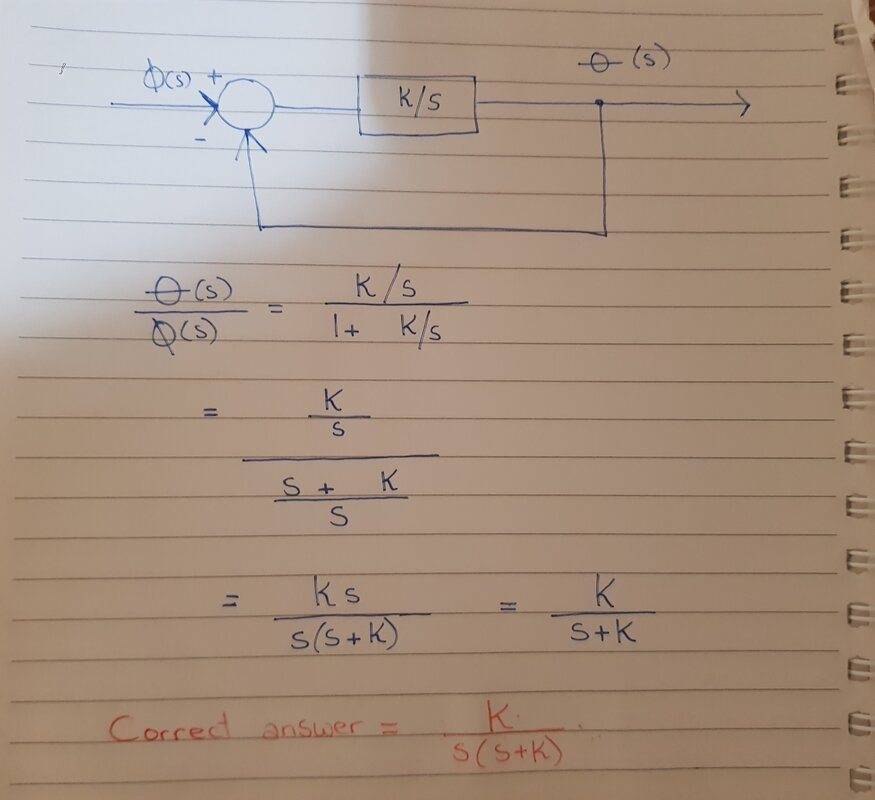 ϕ(s) + K/s θ(s)
-
θ(s) / ϕ(s) = K/s / 1 + K/s
= K/s / S + K/S
= Ks / s(s+K) = K / s+K
Correct answer = K / s(s+K)